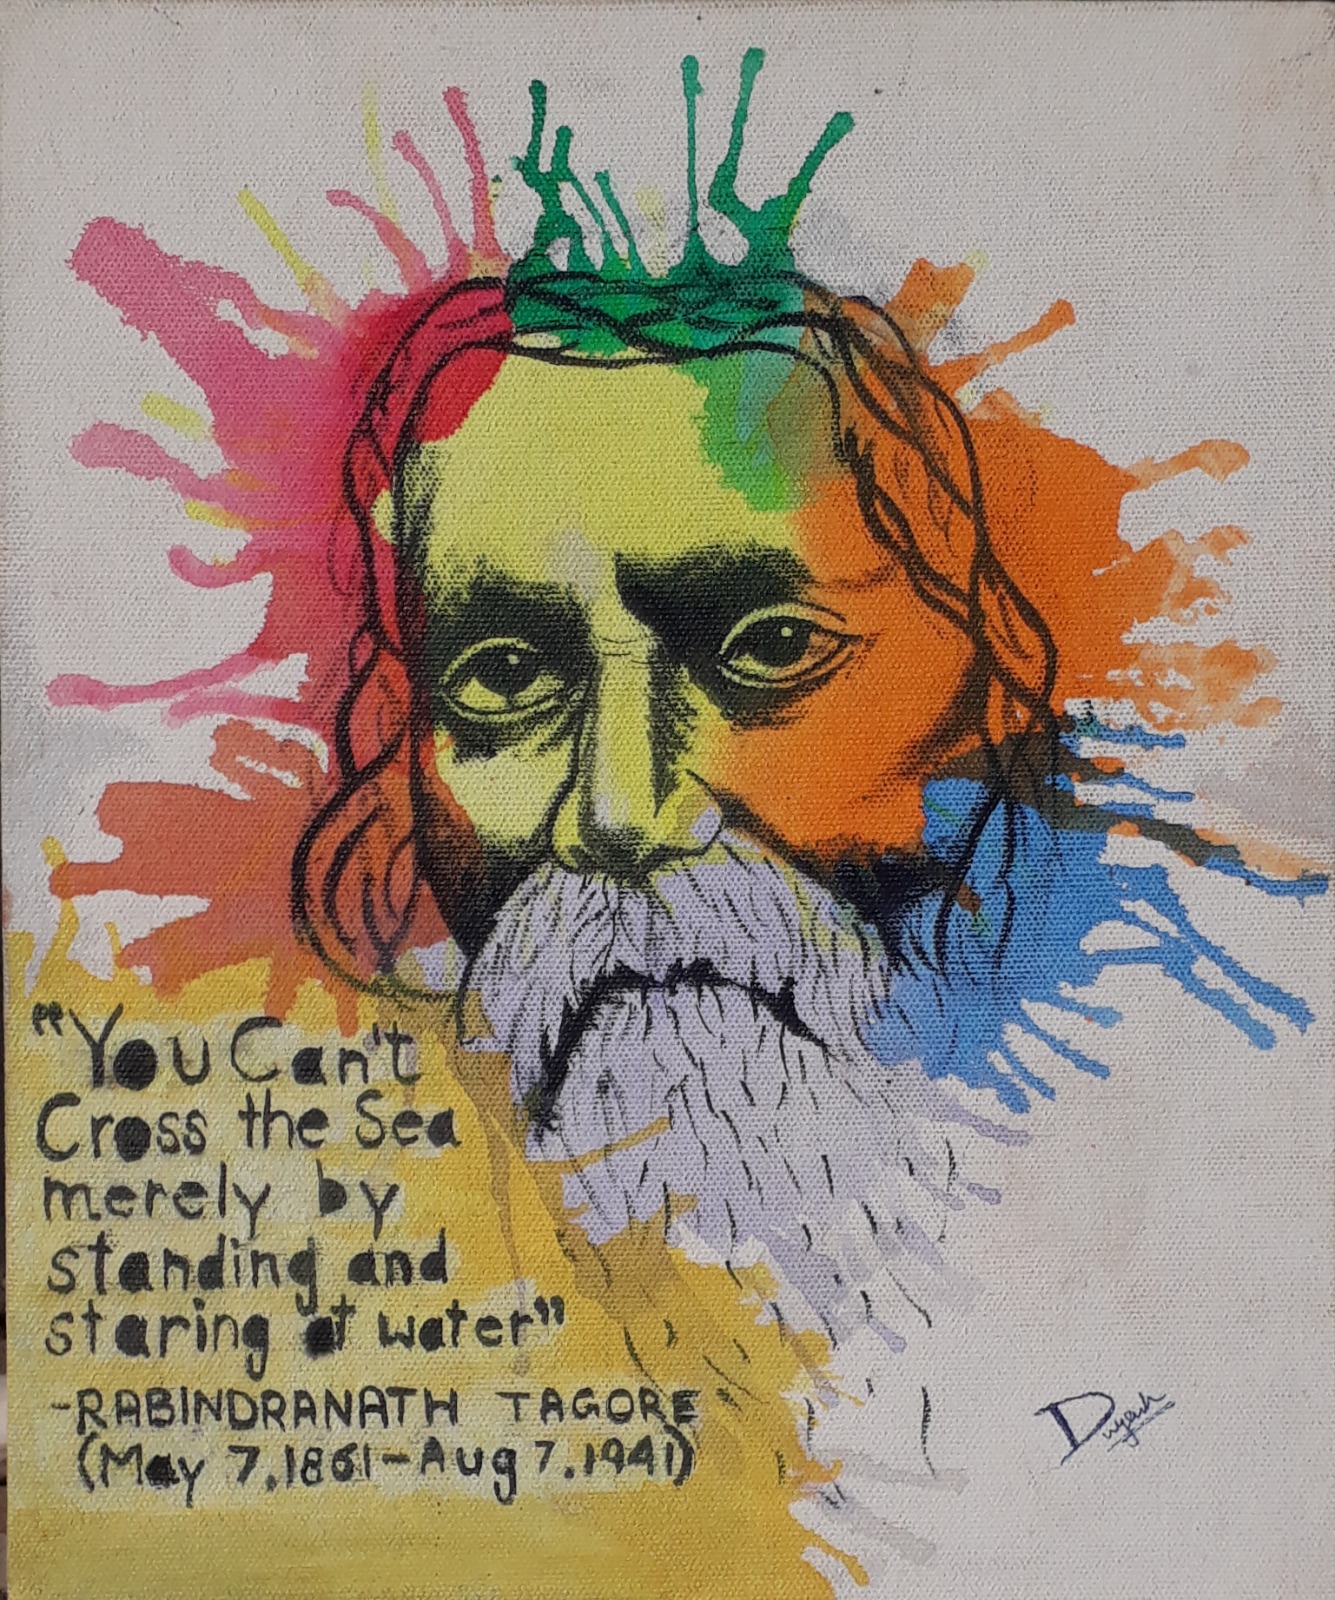 "You Can't
Cross the Sea
merely by
standing and
staring at water"
-RABINDRANATH TAGORE
(May 7.1861-Aug 7.1941)